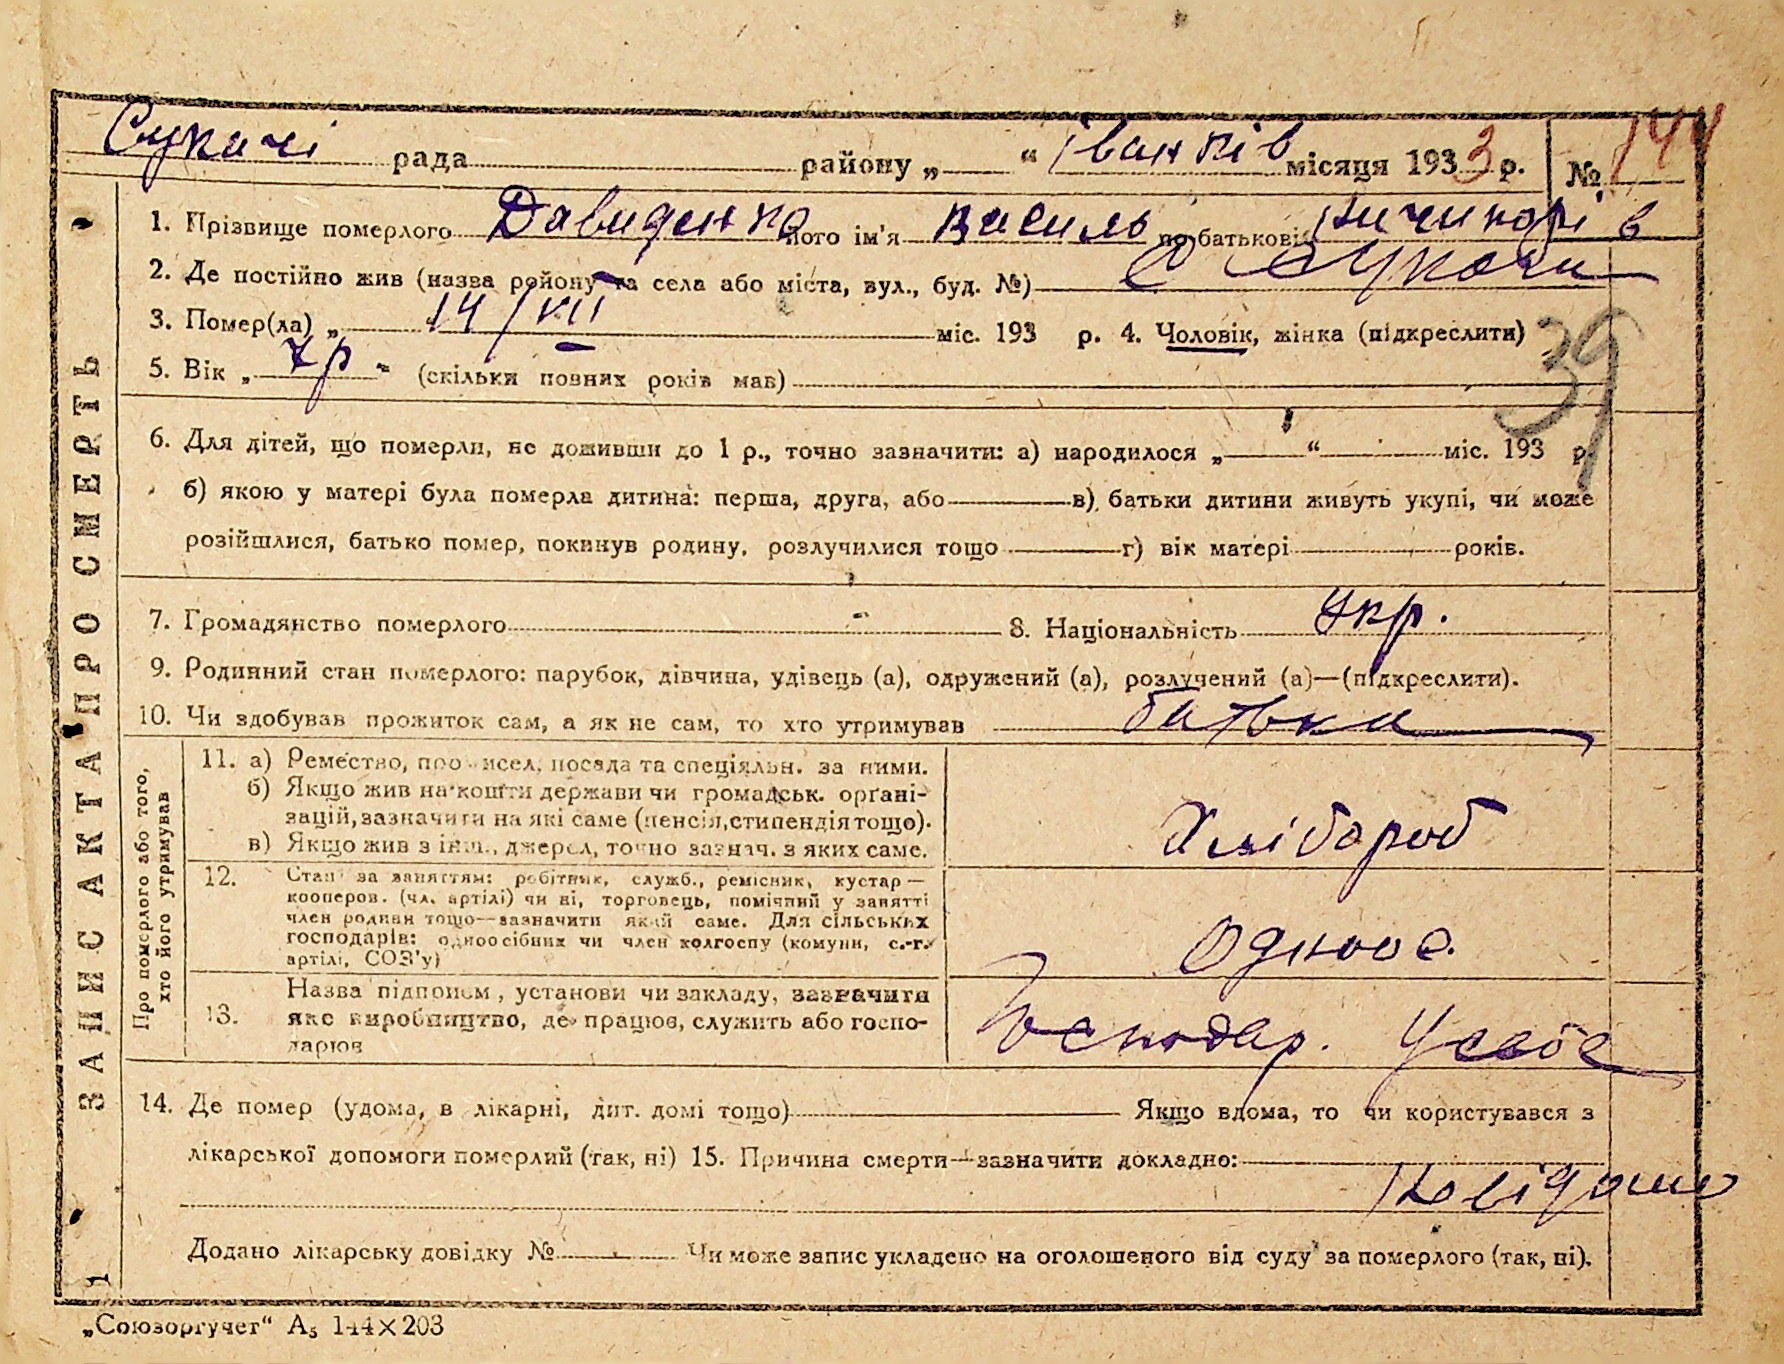 Сукачі рада района „ “ Іванків місяця 1933 р. № 144
1. Прізвище померлого Давиденко його ім'я Василь по батькові Ничипорів
2. Де постійно жив (назва району та села або міста, вул., буд. №) С Сукачи
3. Помер(ла) „ 14/VII міс. 193 р. 4. Чоловік, жінка (підкреслити)
39
5. Вік „ 7 р “ (скільки повних років мав)
6. Для дітей, що померли, не доживши до 1 р., точно зазначити: а) народилося „ “ міс. 193 р.
б) якою у матері була померла дитина: перша, друга, або в) батьки дитини живуть укупі, чи може
розійшлися, батько помер, покинув родину, розлучилися тощо г) вік матері років.
7. Громадянство померлого 8. Національність Укр.
9. Родинний стан померлого: парубок, дівчина, удівець (а), одружений (а), розлучений (а)—(підкреслити).
10. Чи здобував прожиток сам, а як не сам, то хто утримував батьки
11. а) Ремество, промисел, посада та спеціяльн. за ними.
б) Якщо жив на кошти держави чи громадськ. орґані-
зацій, зазначити на які саме (пенсія, стипендія тощо).
в) Якщо жив з інш. джерел, точно зазнач. з яких саме.
Хлібороб
12. Стан за заняттям: робітник, служб., ремісник, кустар —
кооперов. (чл. артілі) чи ні, торговець, помічний у занятті
член родини тощо—зазначити який саме. Для сільських
господарів: одноосібник чи член колгоспу (комуни, с.-г.
артілі, СОЗ'у)
Одноос.
13. Назва підприєм., установи чи закладу, зазначити
яке виробництво, де працює, служить або госпо-
дарює
Господар. у себе
14. Де помер (удома, в лікарні, дит. домі тощо) Якщо вдома, то чи користувався з
лікарської допомоги померлий (так, ні) 15. Причина смерти—зазначити докладно:
Невідомо
Додано лікарську довідку № Чи може запис укладено на оголошеного від суду за померлого (так, ні).
ЗАПИС АКТА ПРО СМЕРТЬ
Про померлого або того,
хто його утримував
1
„Союзоргучет“ А₅ 144×203